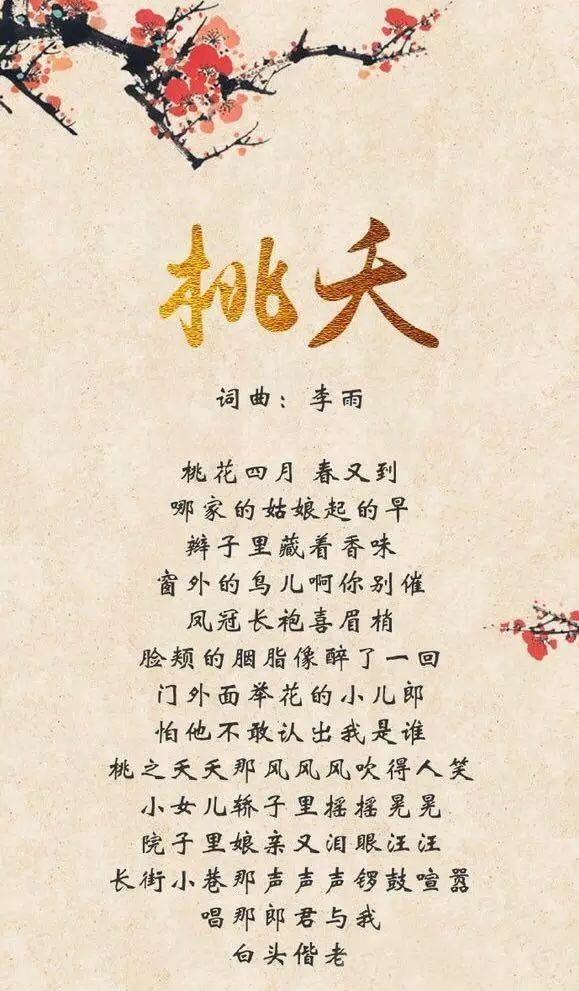 桃夭
词曲：李雨
桃花四月 春又到
哪家的姑娘起的早
辫子里藏着香味
窗外的鸟儿啊你别催
凤冠长袍喜眉梢
脸颊的胭脂像醉了一回
门外面举花的小儿郎
怕他不敢认出我是谁
桃之夭夭那风风风吹得人笑
小女儿轿子里摇摇晃晃
院子里娘亲又泪眼汪汪
长街小巷那声声声锣鼓喧嚣
唱那郎君与我
白头偕老